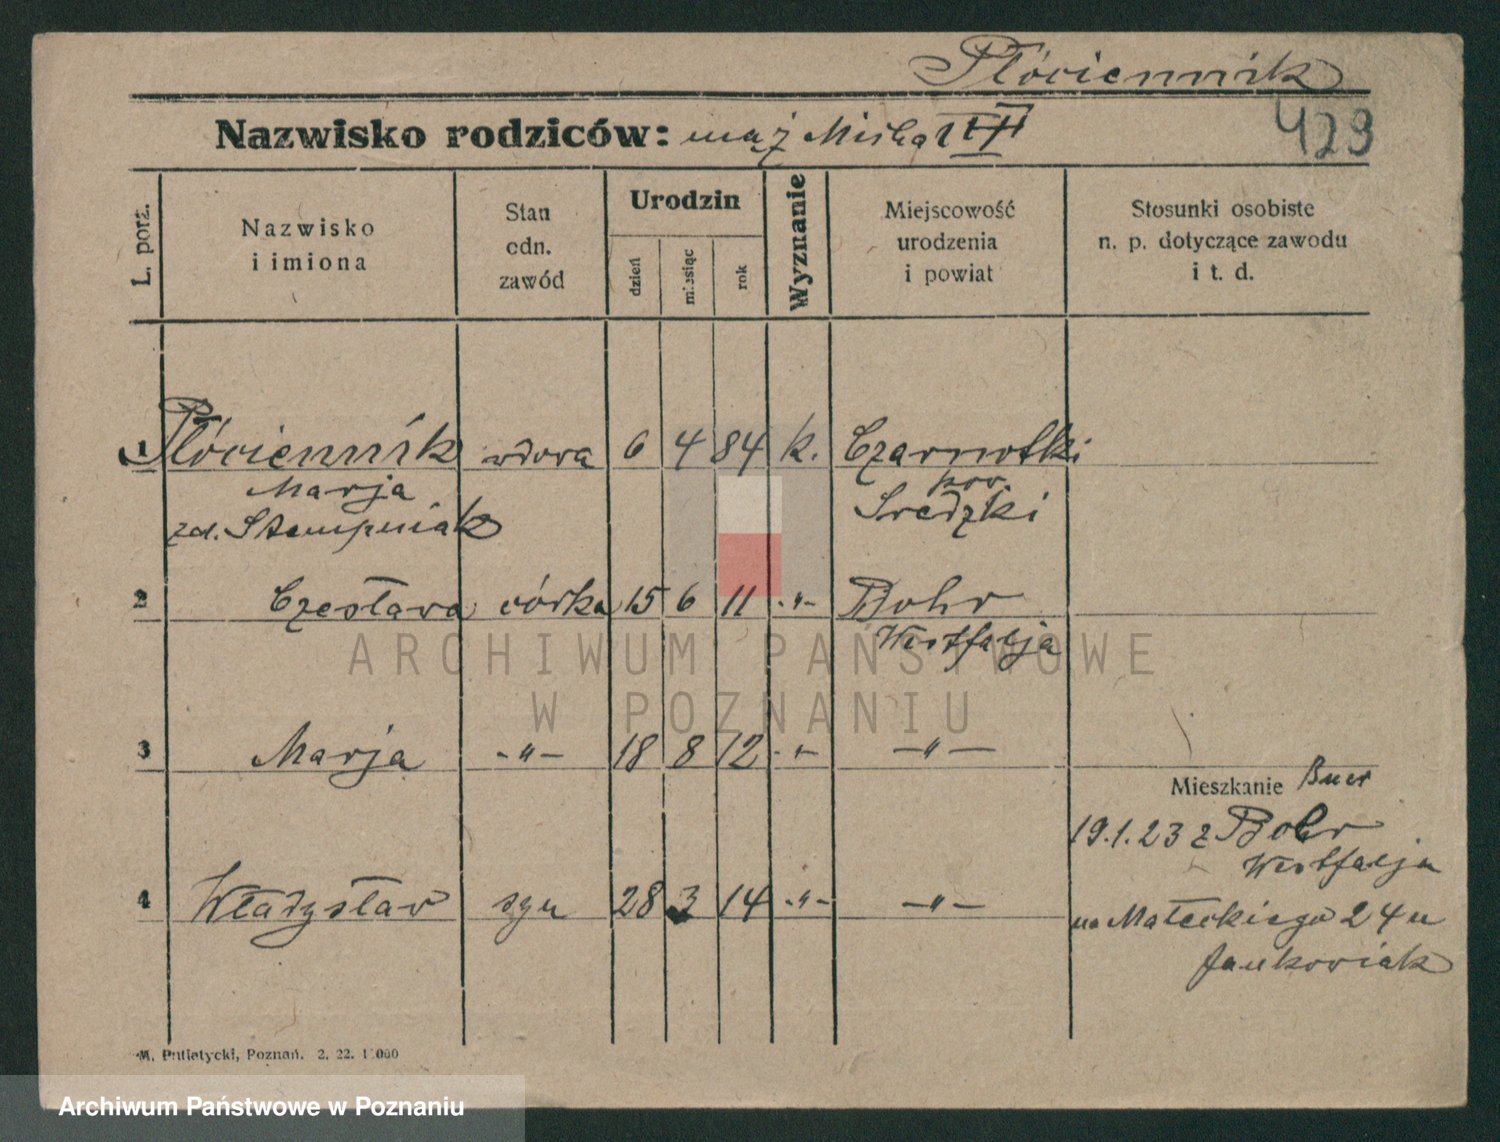 Płóciennik
Nazwisko rodziców: mąż Michał
429
L. porz.
Nazwisko
i imiona
Stan
odn.
zawód
Urodzin
dzień
miesiąc
rok
Wyznanie
Miejscowość
urodzenia
i powiat
Stosunki osobiste
n. p. dotyczące zawodu
i t. d.
1 Płóciennik wdowa 6 4 84 k. Czarnotki
Marja pow.
zd. Stempniak Sredzki
2 Czesława córka 15 6 11 -"- Bohr
Westfalja
3 Marja -"- 18 8 12 -"- -"-
Mieszkanie Buer
19.1.23 z Bohr
Westfalja
4 Władysław syn 28 3 14 -"- -"-
na Małeckiego 24 u
Jankowiak
M. Putiatycki, Poznań. 2. 22.
ARCHIWUM PAŃSTWOWE
W POZNANIU
Archiwum Państwowe w Poznaniu